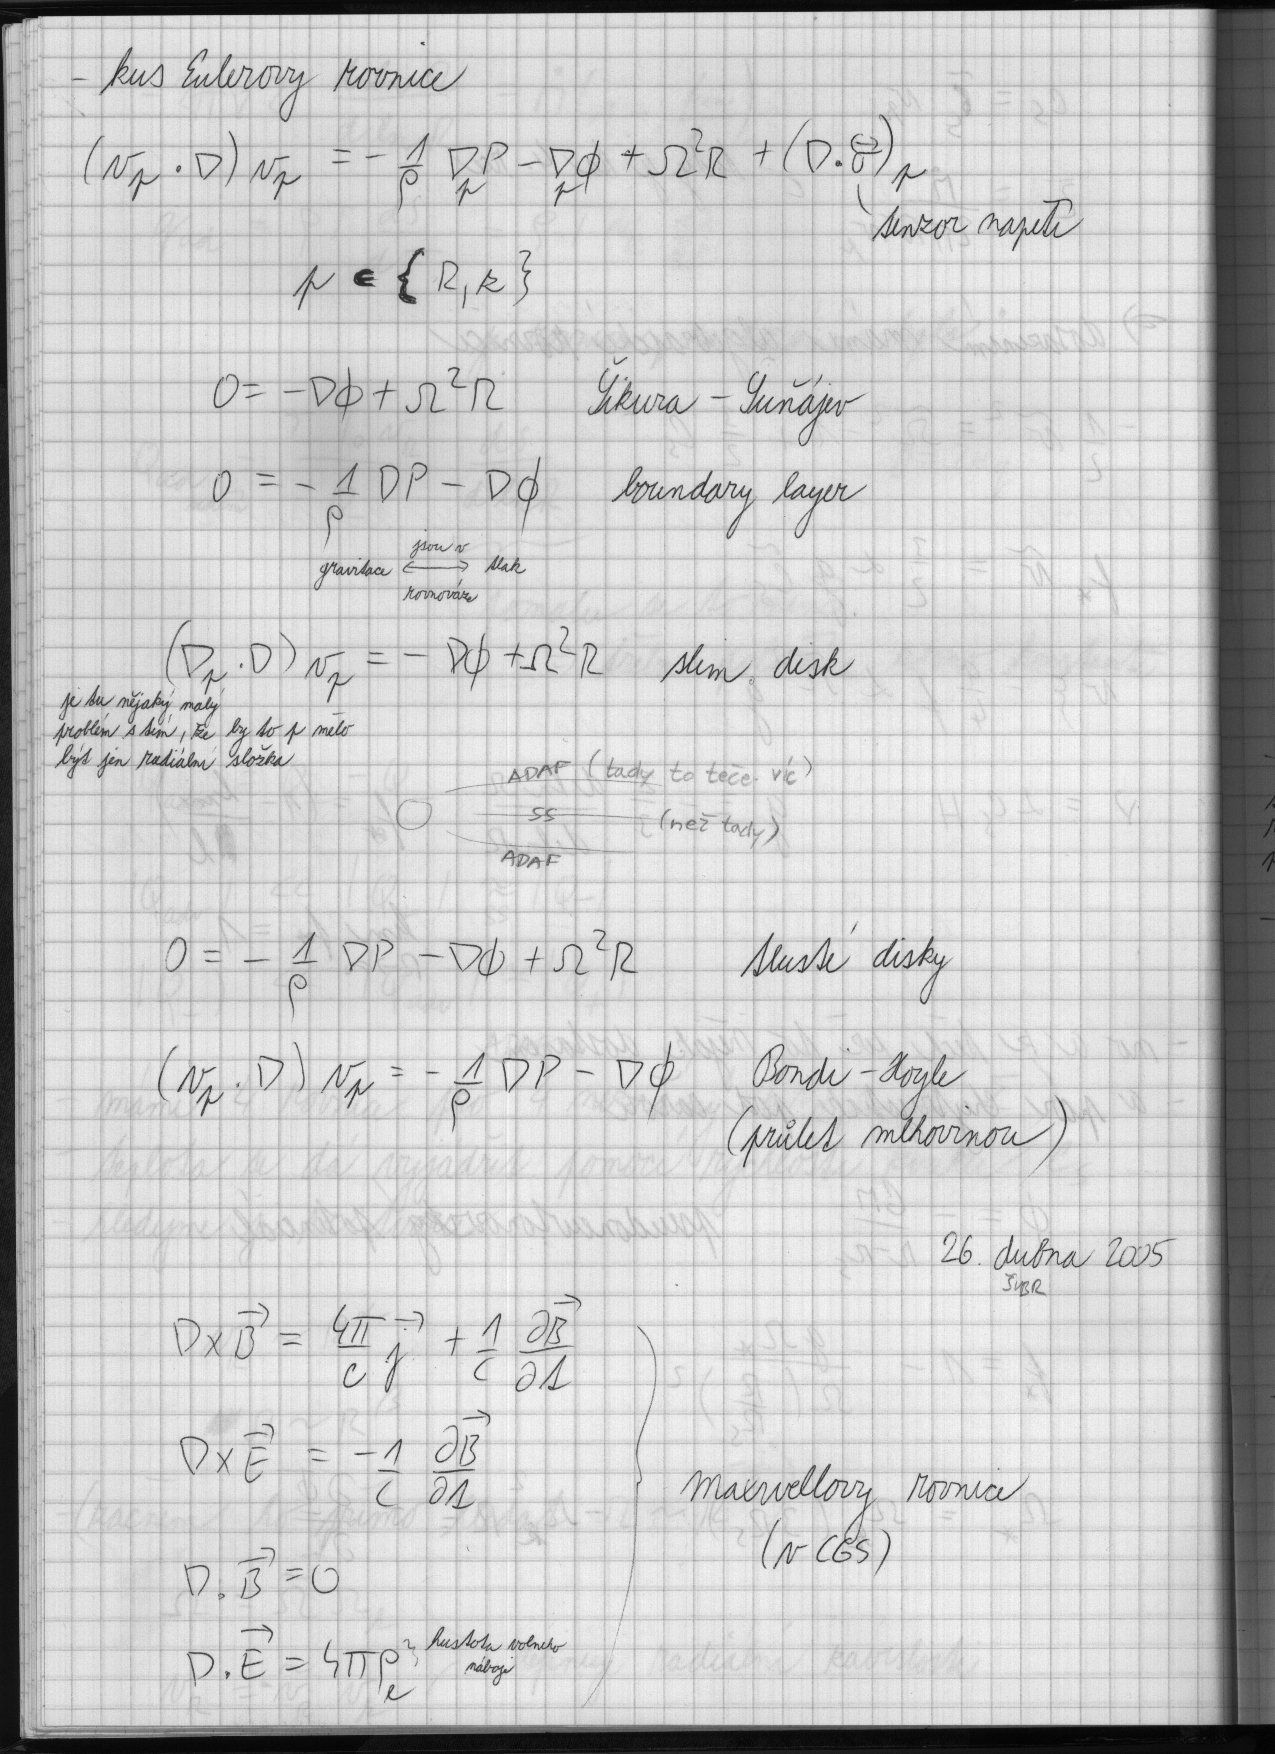 - kus Eulerovy rovnice
(v_p . ∇) v_p = - 1/ρ ∇_p P - ∇_p ϕ + Ω²R + (∇ . σ⃡)_p
tenzor napětí
p ∈ { R, z }
0 = -∇ϕ + Ω²R Šikura - Suňájev
0 = - 1/ρ ∇P - ∇ϕ boundary layer
gravitace ⟷ tlak
jsou v
rovnováze
(∇_p . ∇) v_p = - ∇ϕ + Ω²R slim disk
je tu nějaký malý
problém s tím, že by to p mělo
být jen radiální složka
ADAF (tady to teče víc)
SS (než tady)
ADAF
0 = - 1/ρ ∇P - ∇ϕ + Ω²R tlusté disky
(v_p . ∇) v_p = - 1/ρ ∇P - ∇ϕ Bondi - Hoyle
(průlet mlhovinou)
26. dubna 2005
ŠUBR
∇×B⃗ = 4π/c j⃗ + 1/c ∂B⃗/∂t
∇×E⃗ = - 1/c ∂B⃗/∂t
maxwellovy rovnice
(v CGS)
∇.B⃗ = 0
∇.E⃗ = 4πρ_e hustota volného
náboje